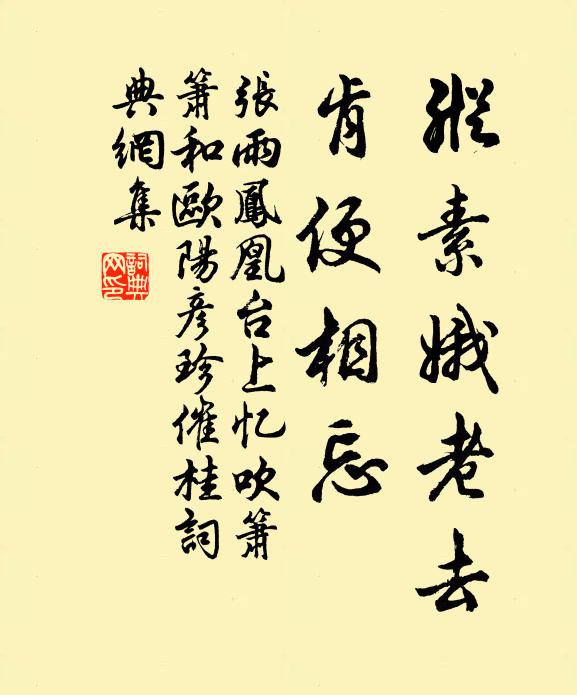 縱素娥老去
肯便相忘
張雨鳳凰台上忆吹簫
簫和歐陽彥珍催桂詞
典網集
詞典網印